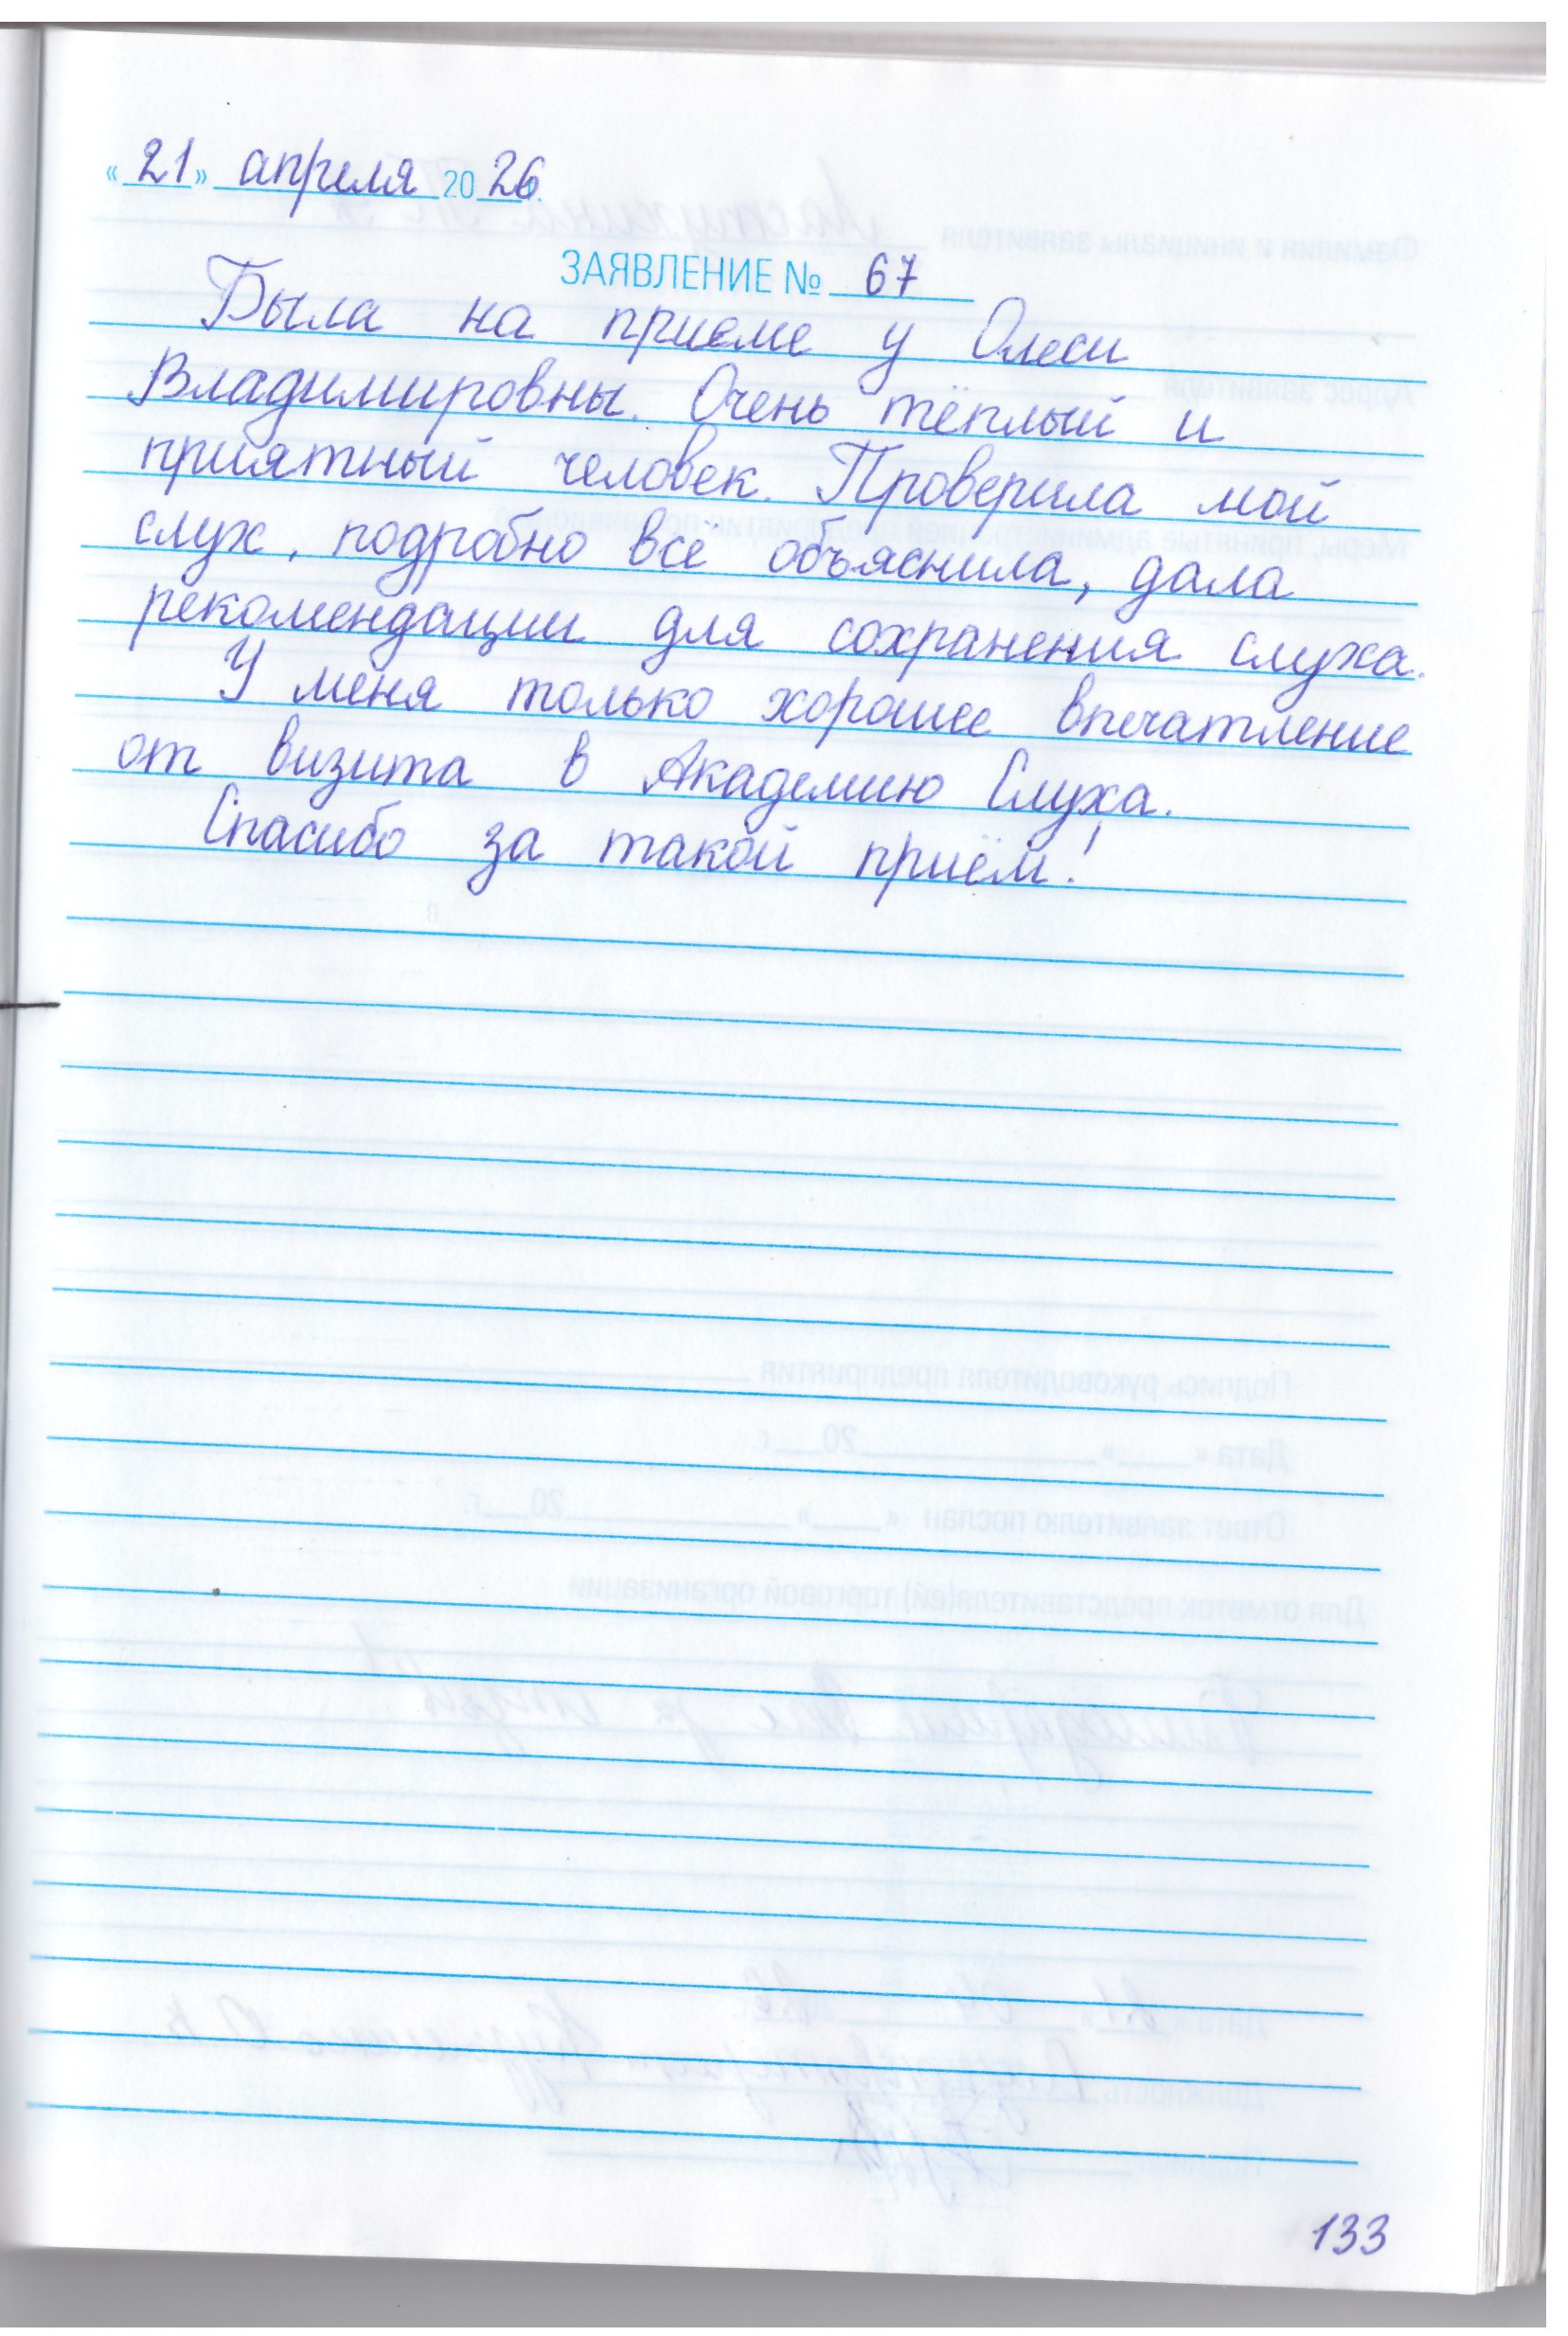 «21» апреля 2026.
ЗАЯВЛЕНИЕ № 67
Была на приеме у Олеси
Владимировны. Очень тёплый и
приятный человек. Проверила мой
слух, подробно всё объяснила, дала
рекомендации для сохранения слуха.
У меня только хорошее впечатление
от визита в Академию Слуха.
Спасибо за такой приём!
133